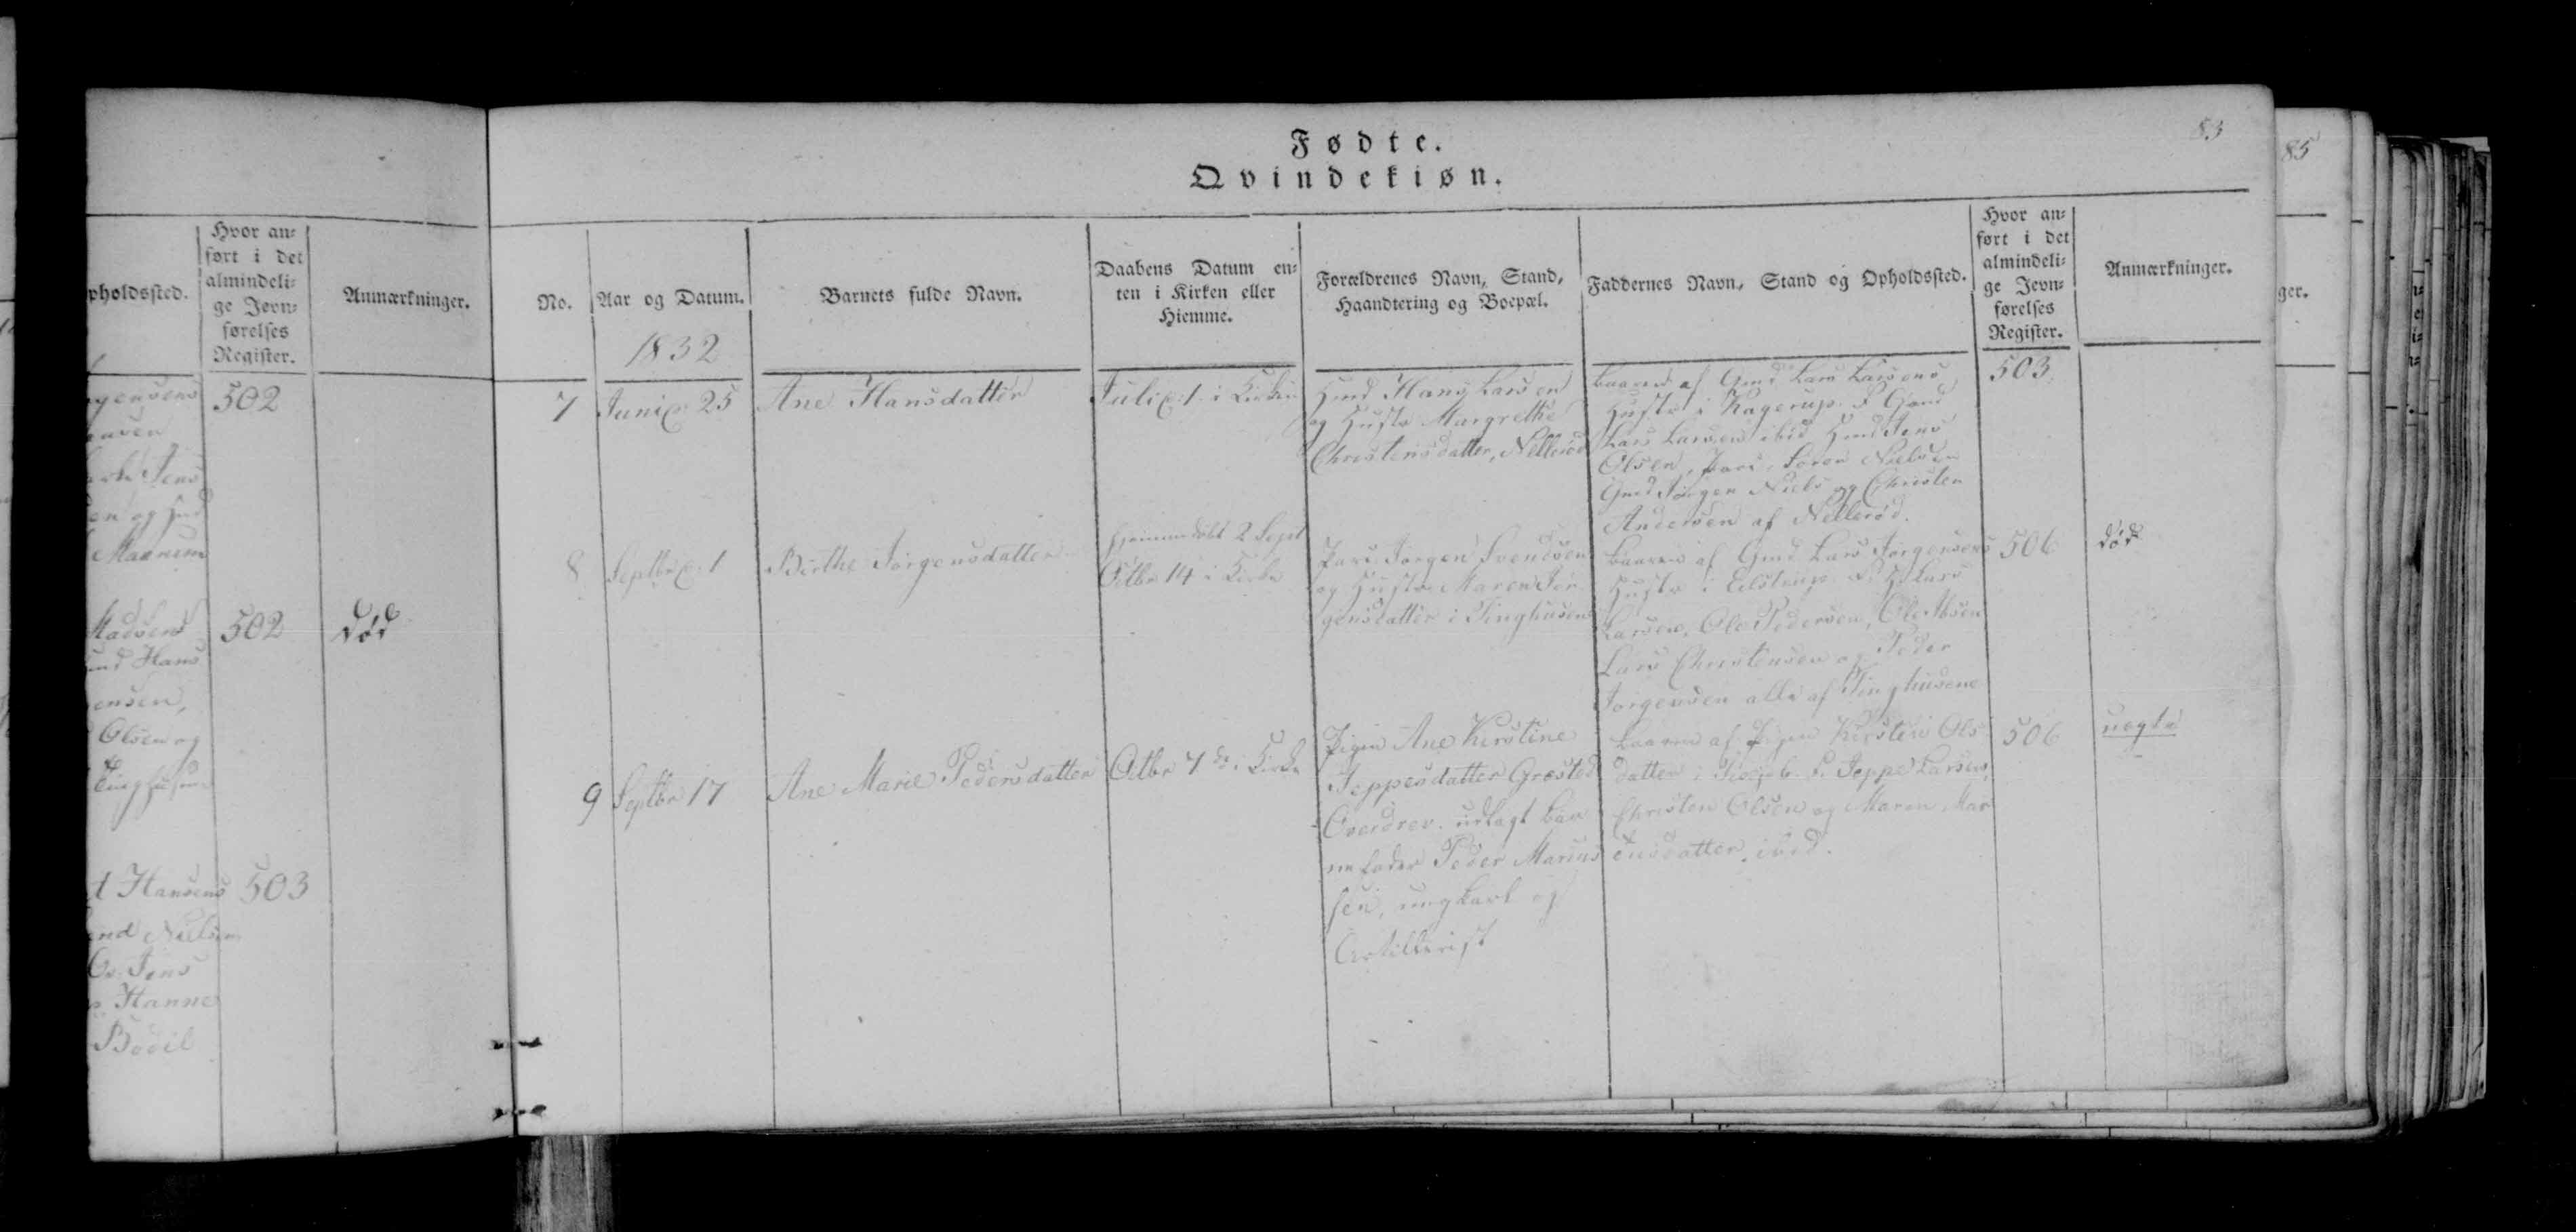 pholdssted.
Hvor an-
ført i det
almindeli-
ge Jevn-
førelses
Register.
Anmærkninger.
gensens
502
Jens
en og
Mademoi
Madsens
502
død
Hans
ensen,
Olsen og
Tinghusene
t Hansens
503
Nielsen
Jens
Hanne
Bodil
83
85
Fødte.
Qvindekiøn.
No.
Aar og Datum.
1832
Barnets fulde Navn.
Daabens Datum en-
ten i Kirken eller
Hiemme.
Forældrenes Navn, Stand,
Haandtering og Boepæl.
Faddernes Navn, Stand og Opholdssted.
Hvor an-
ført i det
almindeli-
ge Jevn-
førelses
Register.
Anmærkninger.
ger.
7
Juni 25
Ane Hansdatter
Juli 1 i Kirken
Hmd Hans Larsen
og Hustr Margrethe
Christensdatter, Nellerød
baaren af Gmd Lars Larsens
Hustr i Kagerup. F. Gmd
Lars Larsen ibid Hmd Jens
Olsen, Søren Nielsen
Gmd Jørgen Niels og Christen
Andersen af Nellerød.
503
8
Septbr 1
Birthe Jørgensdatter
hjemmedøbt 2 Sept
Octbr 14 i Kirke
Jørgen Svendsen
og Hustr Maren Jør
gensdatter i Tinghusene
baaren af Gmd Lars Jørgensens
Hustr i F. H. Lars
Larsen, Ole Pedersen, Ole Ibsen
Lars Christensen og Peder
Jørgensen alle af Tinghusene
506
død
9
Septbr 17
Ane Marie Pedersdatter
Octbr 7de i Kirke
Pigen Ane Kirstine
Jeppesdatter Græsted
Overdrev. udlagt bar
nefader Peder Marius
sen, ungkarl og
Artillerist
baaren af Pigen Kirsten Ols
datter i F. Jeppe Larsen,
Christen Olsen og Maren Mar
tensdatter, ibid.
506
uegte